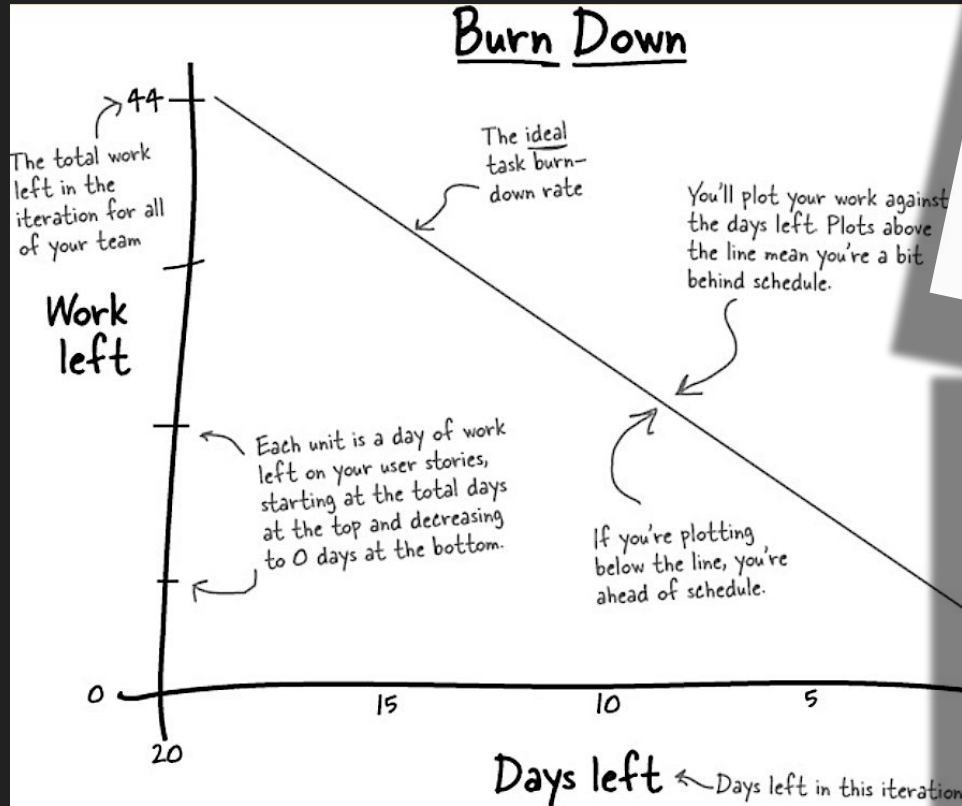 Burn Down
44
The total work
left in the
iteration for all
of your team
The ideal
task burn-
down rate
You'll plot your work against
the days left. Plots above
the line mean you're a bit
behind schedule.
Work
left
Each unit is a day of work
left on your user stories,
starting at the total days
at the top and decreasing
to 0 days at the bottom.
If you're plotting
below the line, you're
ahead of schedule.
0
20
15
10
5
Days left
Days left in this iteration